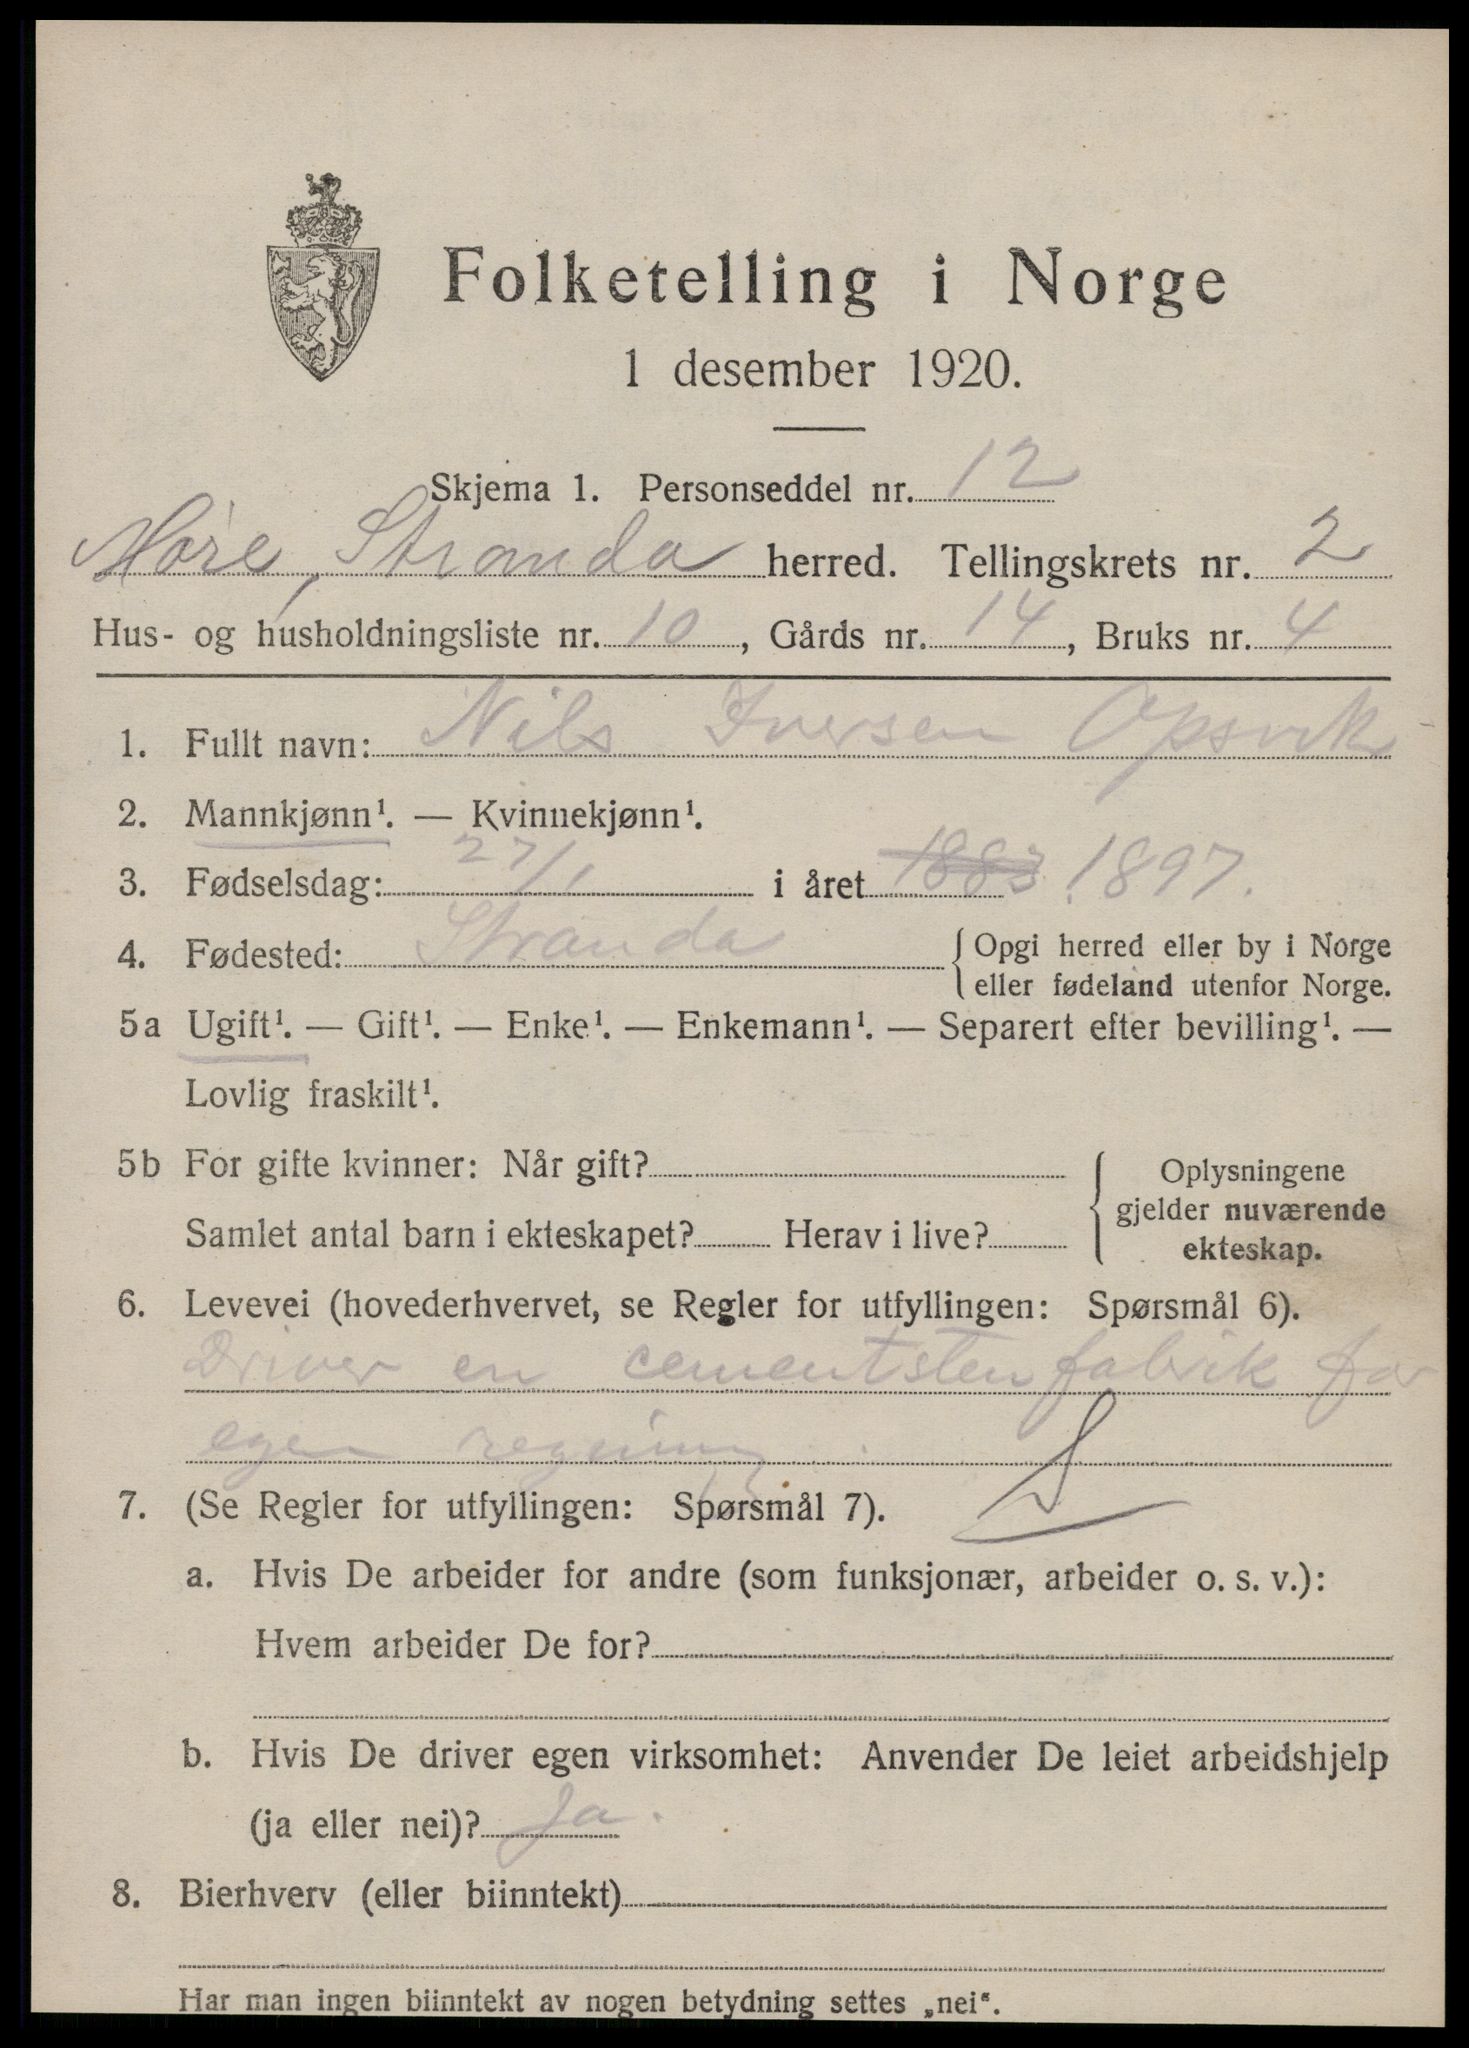 Folketelling i Norge
1 desember 1920.
Skjema 1. Personseddel nr. 12
Møre, Stranda herred. Tellingskrets nr. 2
Hus- og husholdningsliste nr. 10, Gårds nr. 14, Bruks nr. 4
1. Fullt navn: Nils Iversen Opsvik
2. Mannkjønn¹. — Kvinnekjønn¹.
3. Fødselsdag: 27/1 i året 1883 1897.
4. Fødested: Stranda { Opgi herred eller by i Norge
eller fødeland utenfor Norge.
5a Ugift¹. — Gift¹. — Enke¹. — Enkemann¹. — Separert efter bevilling¹. —
Lovlig fraskilt¹.
5b For gifte kvinner: Når gift? { Oplysningene
gjelder nuværende
Samlet antal barn i ekteskapet? Herav i live? ekteskap.
6. Levevei (hovederhvervet, se Regler for utfyllingen: Spørsmål 6).
Driver en cementstenfabrik for
egen regning.
7. (Se Regler for utfyllingen: Spørsmål 7).
a. Hvis De arbeider for andre (som funksjonær, arbeider o. s. v.):
Hvem arbeider De for?
b. Hvis De driver egen virksomhet: Anvender De leiet arbeidshjelp
(ja eller nei)? Ja.
8. Bierhverv (eller biinntekt)
Har man ingen biinntekt av nogen betydning settes „nei“.